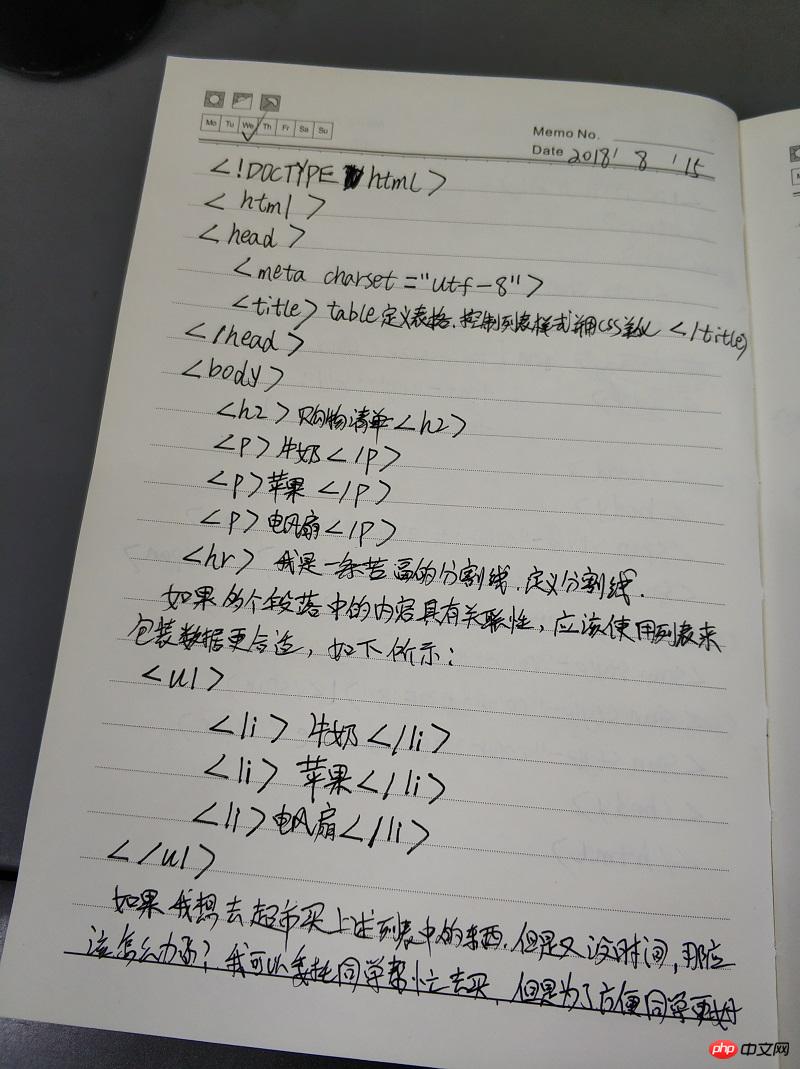 Mo Tu We Th Fr Sa Su
Memo No.
Date 2018' 8 '15
<!DOCTYPE html>
<html>
<head>
<meta charset="utf-8">
<title> table定义表格,控制列表样式并用CSS </title>
</head>
<body>
<h2>购物清单<h2>
<p>牛奶</p>
<p>苹果</p>
<p>电风扇</p>
<hr> 我是一条苦逼的分割线,定义分割线.
如果多个段落中的内容具有关联性,应该使用列表来
包装数据更合适,如下所示:
<ul>
<li>牛奶</li>
<li>苹果</li>
<li>电风扇</li>
</ul>
如果我想去超市买上述列表中的东西,但是又没时间,那应
该怎么办了?我可以委托同学帮忙去买,但是为了方便同学更好
php中文网